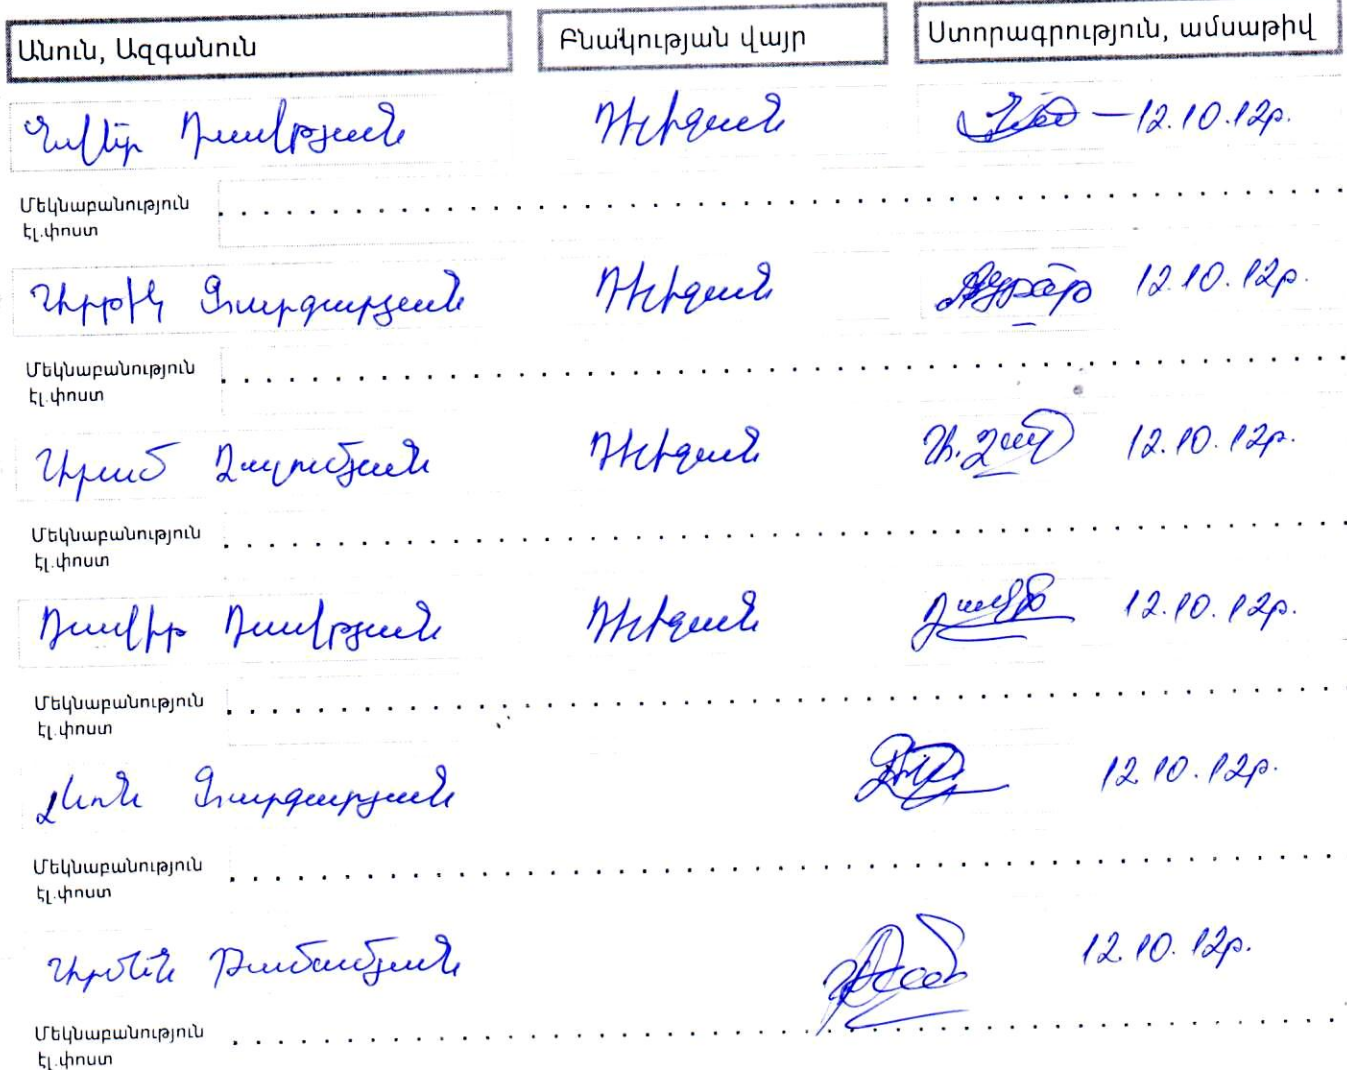 Անուն, Ազգանուն Բնակության վայր Ստորագրություն, ամսաթիվ
Դավթյան Դիլիջան 12.10.12թ.
Մեկնաբանություն
էլ.փոստ
Դիլիջան 12.10.12թ.
Մեկնաբանություն
էլ.փոստ
Արամ Դիլիջան 12.10.12թ.
Մեկնաբանություն
էլ.փոստ
Դավիթ Դավթյան Դիլիջան 12.10.12թ.
Մեկնաբանություն
էլ.փոստ
Լևոն 12.10.12թ.
Մեկնաբանություն
էլ.փոստ
Արմեն Թամամյան 12.10.12թ.
Մեկնաբանություն
էլ.փոստ